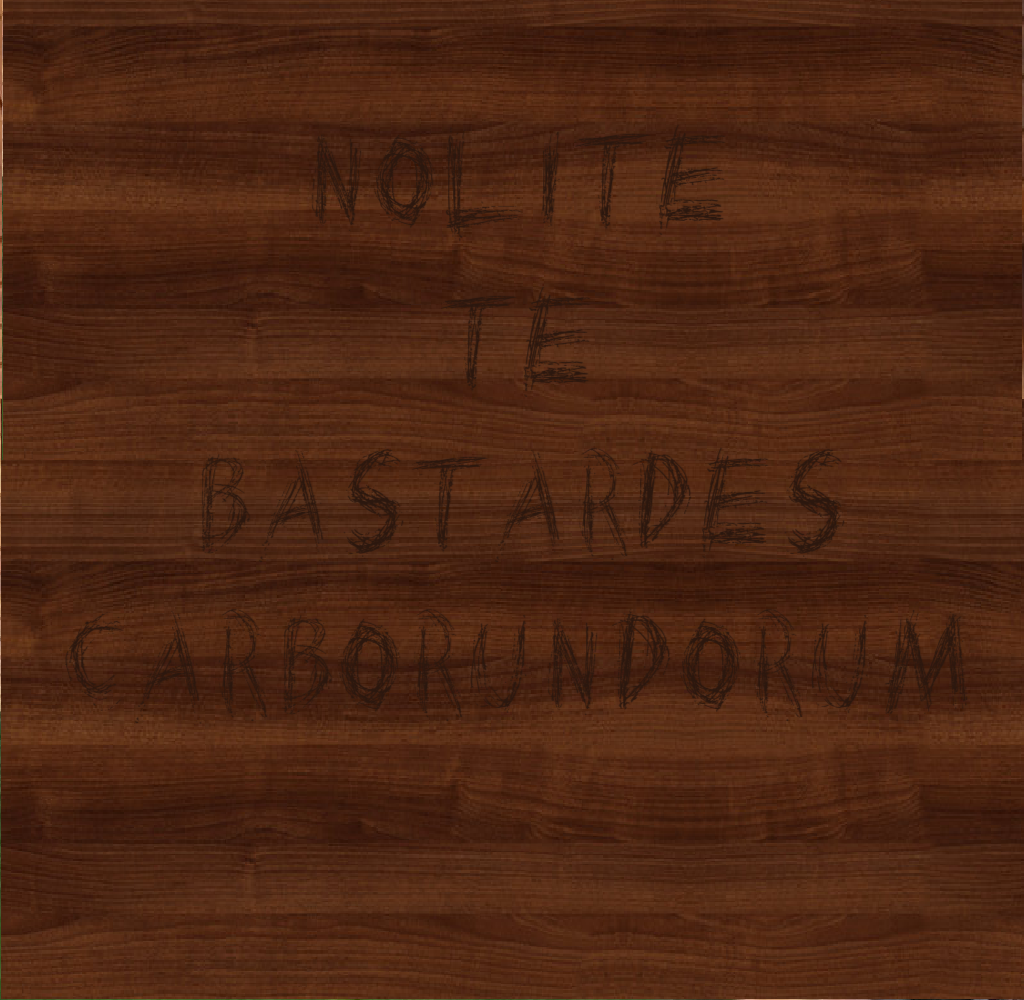 NOLITE
TE
BASTARDES
CARBORUNDORUM